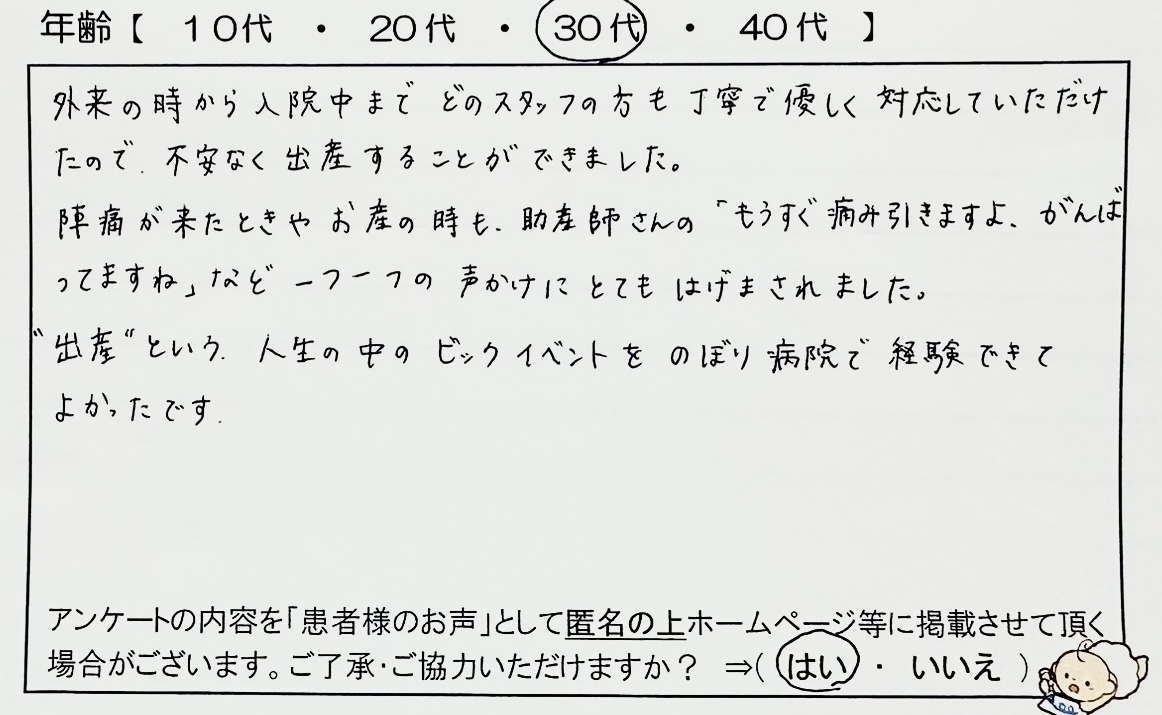 年齢【 １０代 ・ ２０代 ・ ３０代 ・ ４０代 】
外来の時から入院中まで どのスタッフの方も 丁寧で優しく 対応していただけ
たので、不安なく 出産することができました。
陣痛が来たときや お産の時も、助産師さんの「もうすぐ痛み引きますよ、がんば
ってますね」など 一つ一つの 声かけに とても はげまされました。
"出産"という、人生の中の ビックイベントを のぼり病院で 経験できて
よかったです.
アンケートの内容を「患者様のお声」として匿名の上ホームページ等に掲載させて頂く
場合がございます。ご了承・ご協力いただけますか？ ⇒( はい ・ いいえ )